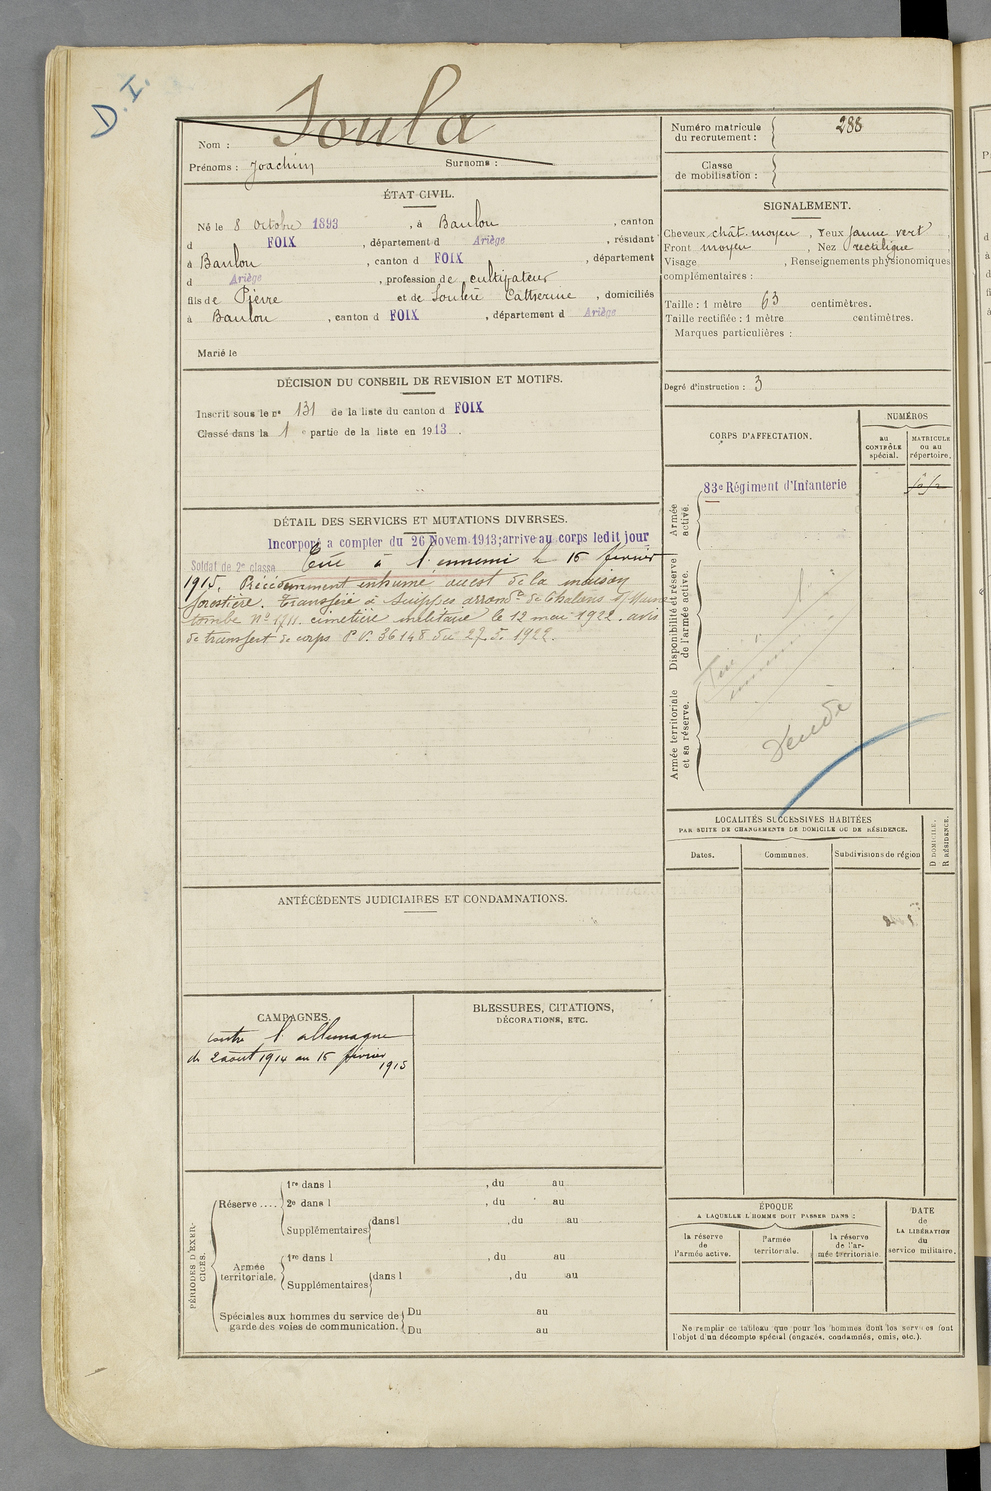 D.I.
Soula
Nom :
Prénoms : Joachim Surnoms :
ÉTAT CIVIL.
Né le 8 Octobre 1893 , à Baulou , canton
d FOIX , département d Ariège , résidant
à Baulou , canton d FOIX , département
d Ariège , profession de cultivateur
fils de Pierre et de Soulère Catherine , domiciliés
à Baulou , canton d FOIX , département d Ariège
Marié le
DÉCISION DU CONSEIL DE REVISION ET MOTIFS.
Inscrit sous le n° 131 de la liste du canton d FOIX
Classé dans la 1 e partie de la liste en 1913 .
DÉTAIL DES SERVICES ET MUTATIONS DIVERSES.
Incorporé a compter du 26 Novem. 1913; arrive au corps ledit jour
Soldat de 2e classe Tué à l'ennemi le 15 février
1915. Précédemment inhumé ouest de la maison
forestière. Transféré à Suippes arromd. de Chalons s/ Marne
tombe N° 1711. cimetière militaire le 12 mai 1922. avis
de transfert de corps P.V. 36148 du 27.5.1922.
ANTÉCÉDENTS JUDICIAIRES ET CONDAMNATIONS.
CAMPAGNES.
contre l'allemagne
du 2 août 1914 au 15 février
1915
BLESSURES, CITATIONS,
DÉCORATIONS, ETC.
PÉRIODES D'EXER-
CICES.
Réserve ....
1re dans l , du au
2e dans l , du au
Supplémentaires dans l , du au
Armée
territoriale.
1re dans l , du au
Supplémentaires dans l , du au
Spéciales aux hommes du service de
garde des voies de communication.
Du au
Du au
Numéro matricule
du recrutement : 288
Classe
de mobilisation :
SIGNALEMENT.
Cheveux chât. moyen , Yeux jaune vert
Front moyen , Nez rectiligne
Visage , Renseignements physionomiques
complémentaires :
Taille : 1 mètre 63 centimètres.
Taille rectifiée : 1 mètre centimètres.
Marques particulières :
Degré d'instruction : 3
CORPS D'AFFECTATION.
NUMÉROS
au
CONTRÔLE
spécial.
MATRICULE
ou au
répertoire.
Armée
active.
83e Régiment d'Infanterie
Disponibilité et réserve
de l'armée active.
Tué à l'
ennemi
Armée territoriale
et sa réserve.
LOCALITÉS SUCCESSIVES HABITÉES
PAR SUITE DE CHANGEMENTS DE DOMICILE OU DE RÉSIDENCE.
Dates.
Communes.
Subdivisions de région
D DOMICILE.
R RÉSIDENCE.
ÉPOQUE
A LAQUELLE L'HOMME DOIT PASSER DANS :
la réserve
de
l'armée active.
l'armée
territoriale.
la réserve
de l'ar-
mée territoriale.
DATE
de
LA LIBÉRATION
du
service militaire.
Ne remplir ce tableau que pour les hommes dont les services font
l'objet d'un décompte spécial (engagés, condamnés, omis, etc.).